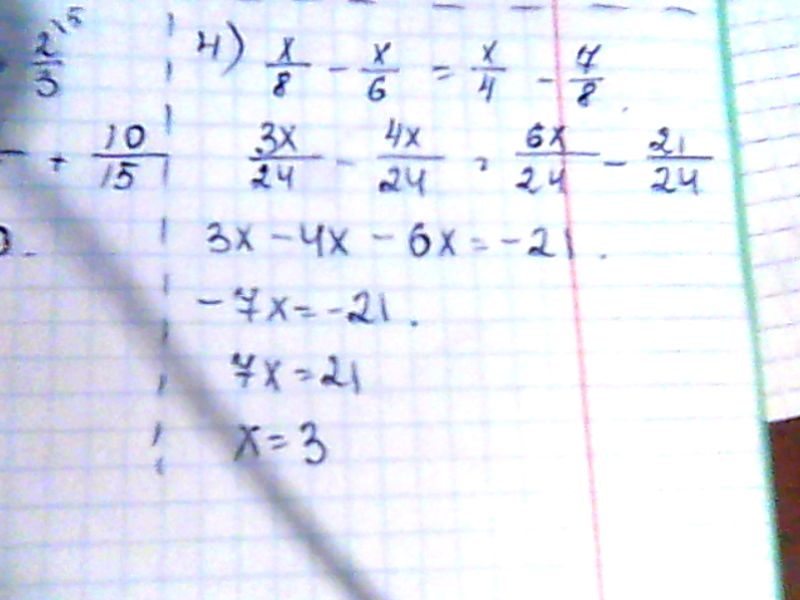 2/3 15
+ 10/15
4) x/8 - x/6 = x/4 - 7/8.
3x/24 - 4x/24 = 6x/24 - 21/24
3x - 4x - 6x = -21.
-7x = -21.
7x = 21
x = 3